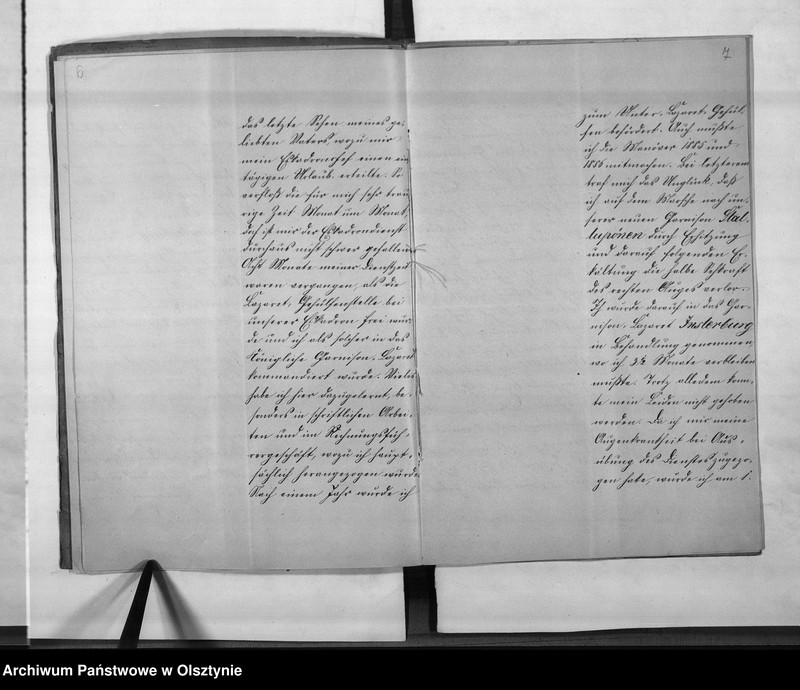 6
das letzte Sehen meines ge-
liebten Vaters, wozu mir
mein Eskadronchef einen ein
tägigen Urlaub erteilte. So
verfloß die für mich sehr trau
rige Zeit Monat um Monat,
doch ist mir der Eskadrondienst
durchaus nicht schwer gefallen.
Acht Monate meiner Dienstzeit
waren vergangen, als die
Lazaret-Gehülfenstelle bei
unserer Eskadron frei wur-
de und ich als solcher in das
Königliche Garnison-Lazaret
kommandiert wurde. Vieles
habe ich hier dazugelernt, be-
sonders in schriftlichen Arbei-
ten und im Rechnungsfüh-
rergeschäft, wozu ich haupt-
sächlich herangezogen wurde.
Nach einem Jahr wurde ich
7
zum Unter-Lazaret-Gehül-
fen befördert. Auch mußte
ich die Manöver 1885 und
1886 mitmachen. Bei letzterem
traf mich das Unglück, daß
ich auf dem Marsche nach un-
serer neuen Garnison Stal-
lupönen durch Erhitzung
und darauf folgenden Er-
kältung die halbe Sehkraft
des rechten Auges verlor.
Ich wurde darauf in das Gar-
nison-Lazaret Insterburg
in Behandlung genommen,
wo ich Monate verbleiben
mußte. Trotz alledem konn-
te mein Leiden nicht gehoben
werden. Da ich mir meine
Augenkrankheit bei Aus-
übung des Dienstes zugezo-
gen hatte, wurde ich am 1.
Archiwum Państwowe w Olsztynie